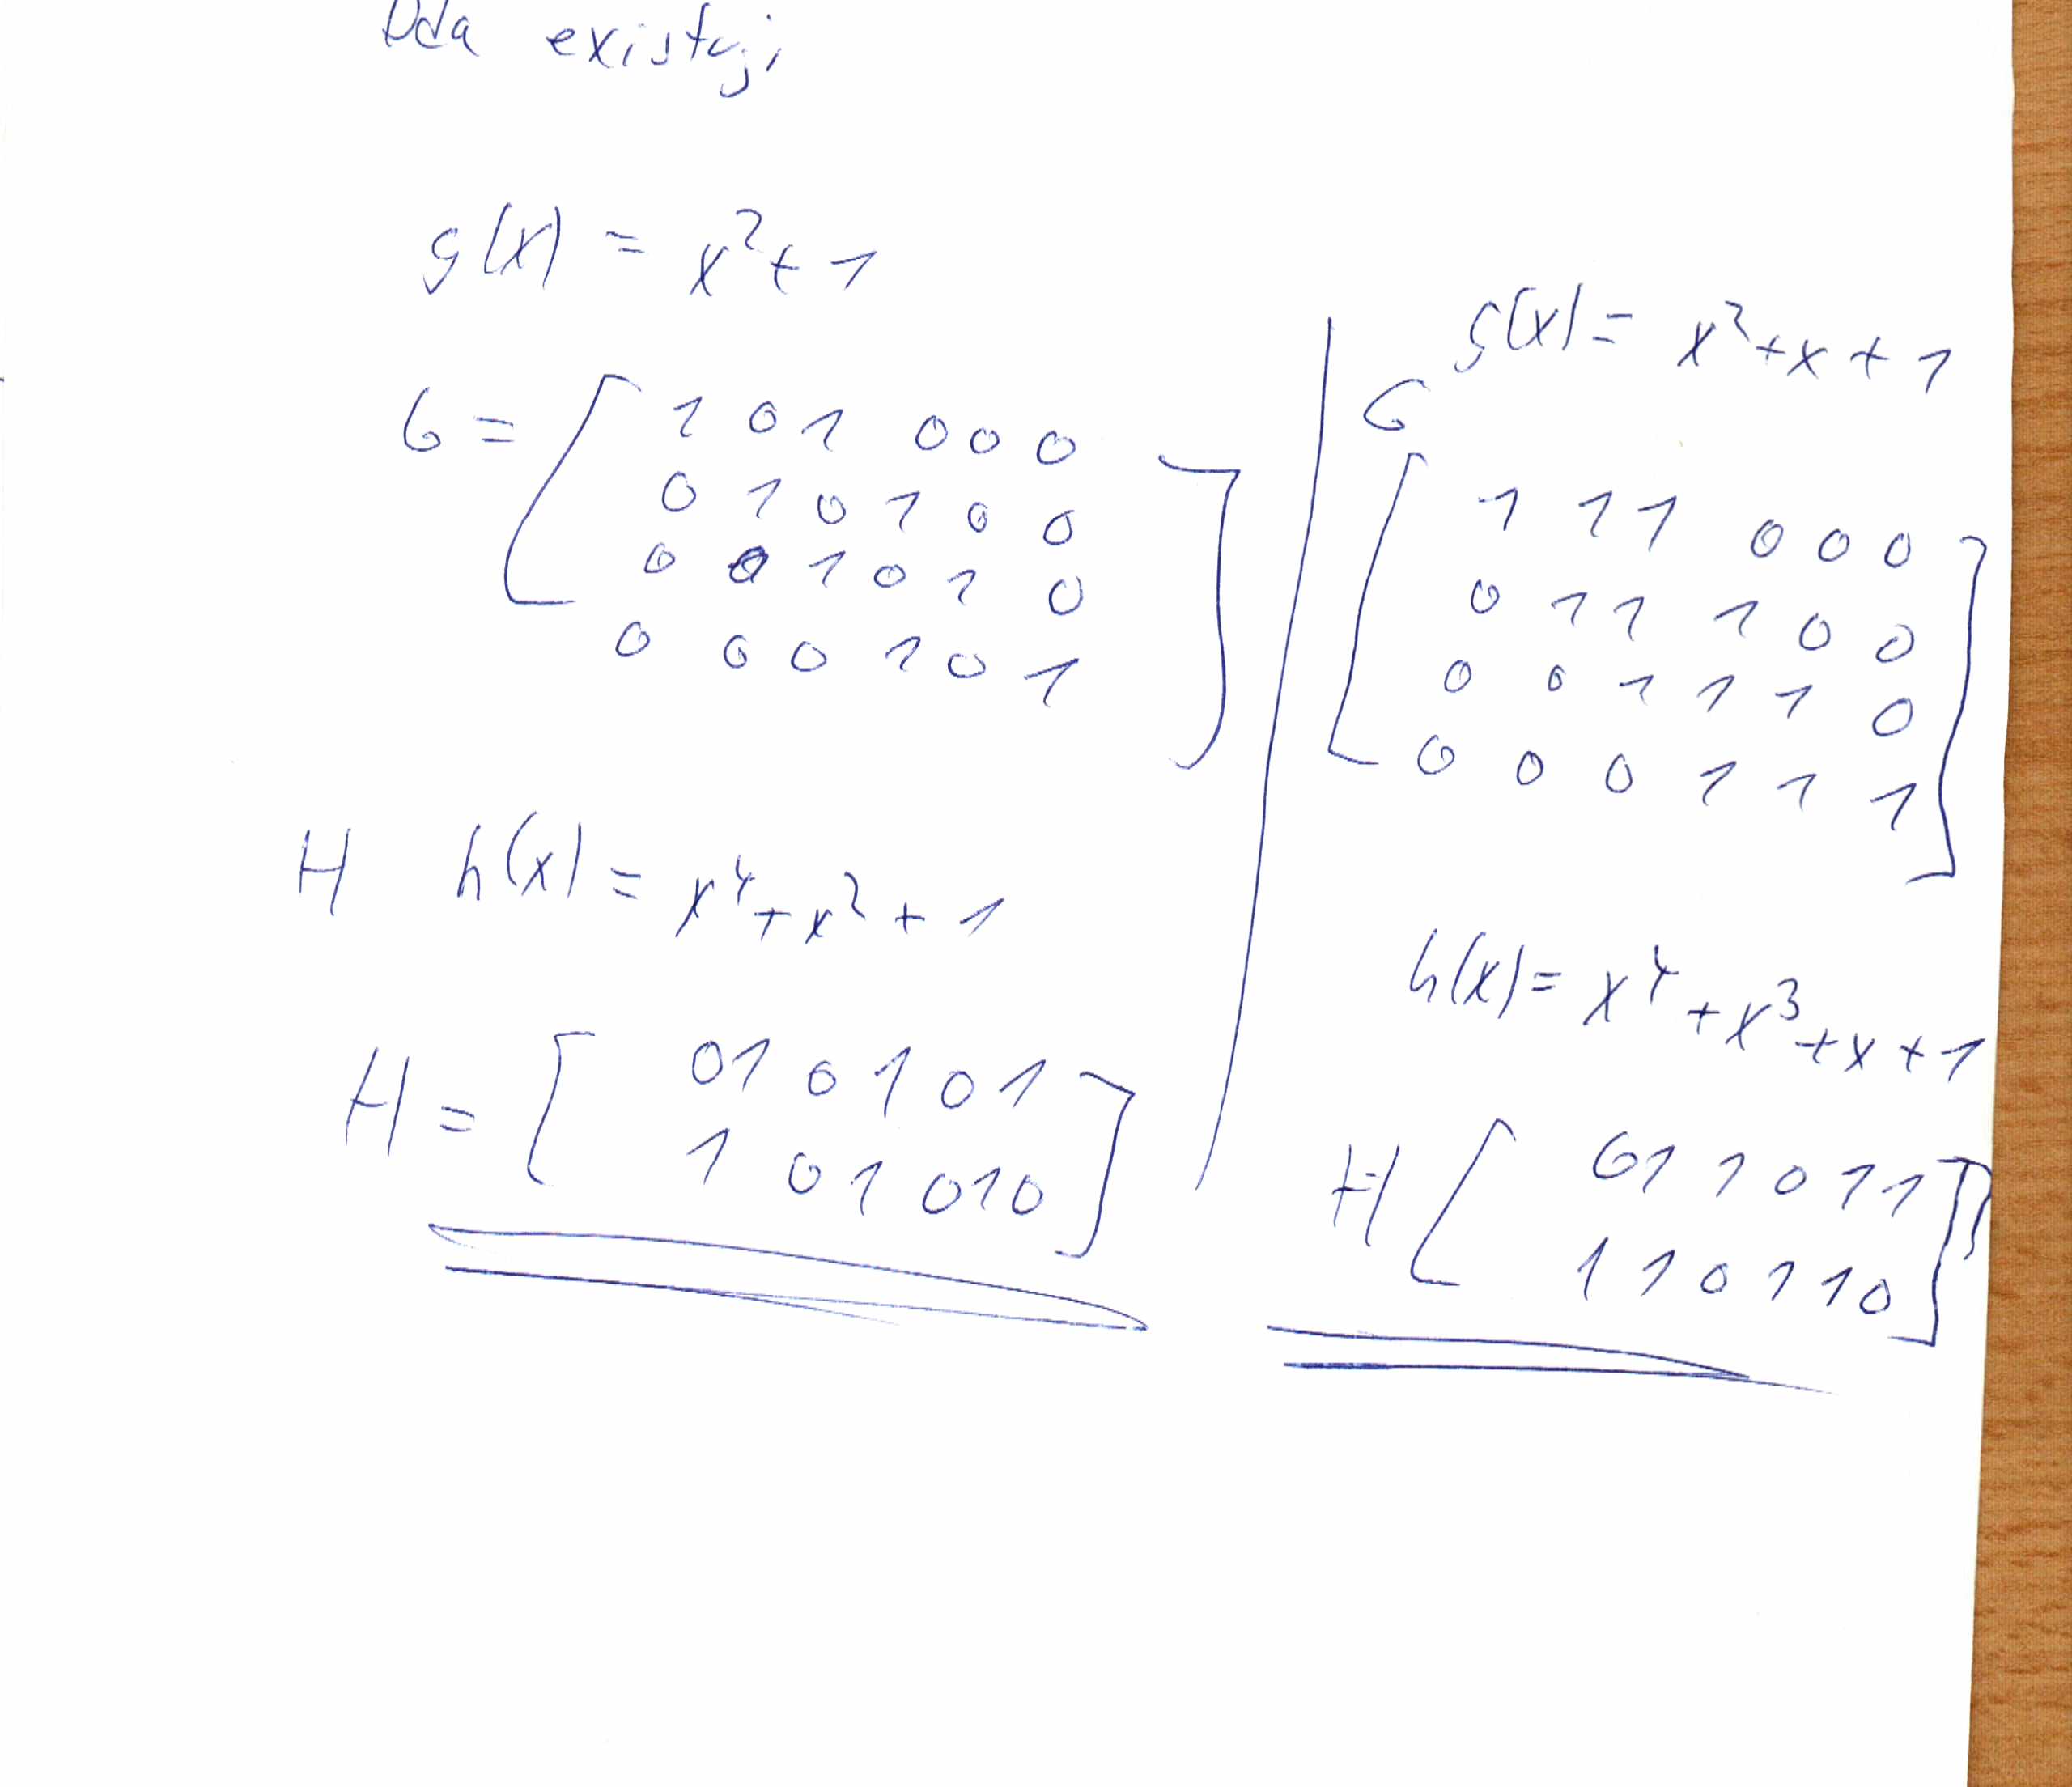 Oda existují
g(x) = x²+1
G = [ 1 0 1 0 0 0
0 1 0 1 0 0
0 0 1 0 1 0
0 0 0 1 0 1 ]
H h(x) = x⁴+x²+1
H = [ 0 1 0 1 0 1
1 0 1 0 1 0 ]
g(x) = x²+x+1
G
[ 1 1 1 0 0 0
0 1 1 1 0 0
0 0 1 1 1 0
0 0 0 1 1 1 ]
h(x) = x⁴+x³+x+1
H [ 0 1 1 0 1 1
1 1 0 1 1 0 ]